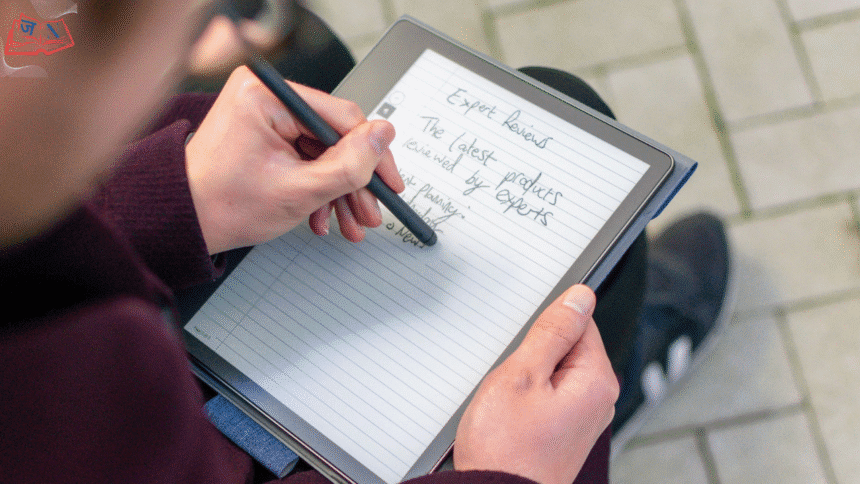 ज
Expert Reviews
The latest products
reviewed by experts
planning:
News